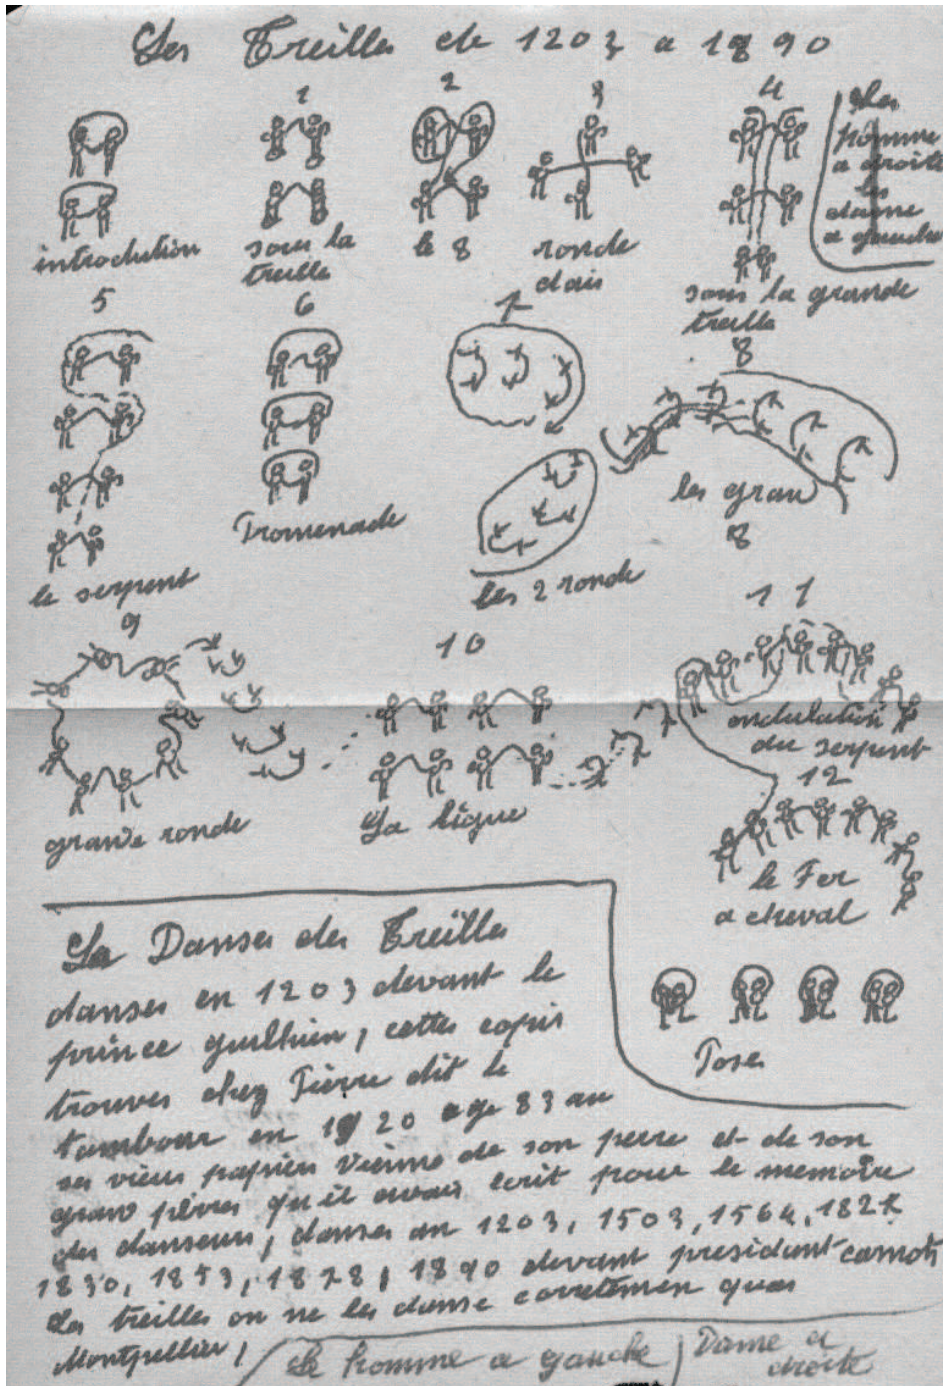 Les Treilles de 1203 a 1890
1
2
3
4
Les
homme
a droite
les
dame
a gauche
introdution
sous la
treille
le 8
ronde
dais
sous la grande
treille
5
6
7
8
le serpent
Promenade
les 2 ronde
les gran
8
9
10
11
grande ronde
La ligue
ondulation
du serpent
12
le Fer
a cheval
La Danses des Treilles
danses en 1203 devant le
prince guilhien, cettes copis
trouves chez Pierre dit le
tambour en 1920 age 83 an
ses vieux papiers vienne de son perre et de son
gran pères qu'il avais ecrit pour le memoire
des danseurs, danses an 1203, 1503, 1564, 1827
1830, 1853, 1878, 1890 devant president carnot
Les treilles on ne les danse corretemen quas
Montpellier,
Poses
le homme a gauche
Dame a
droite